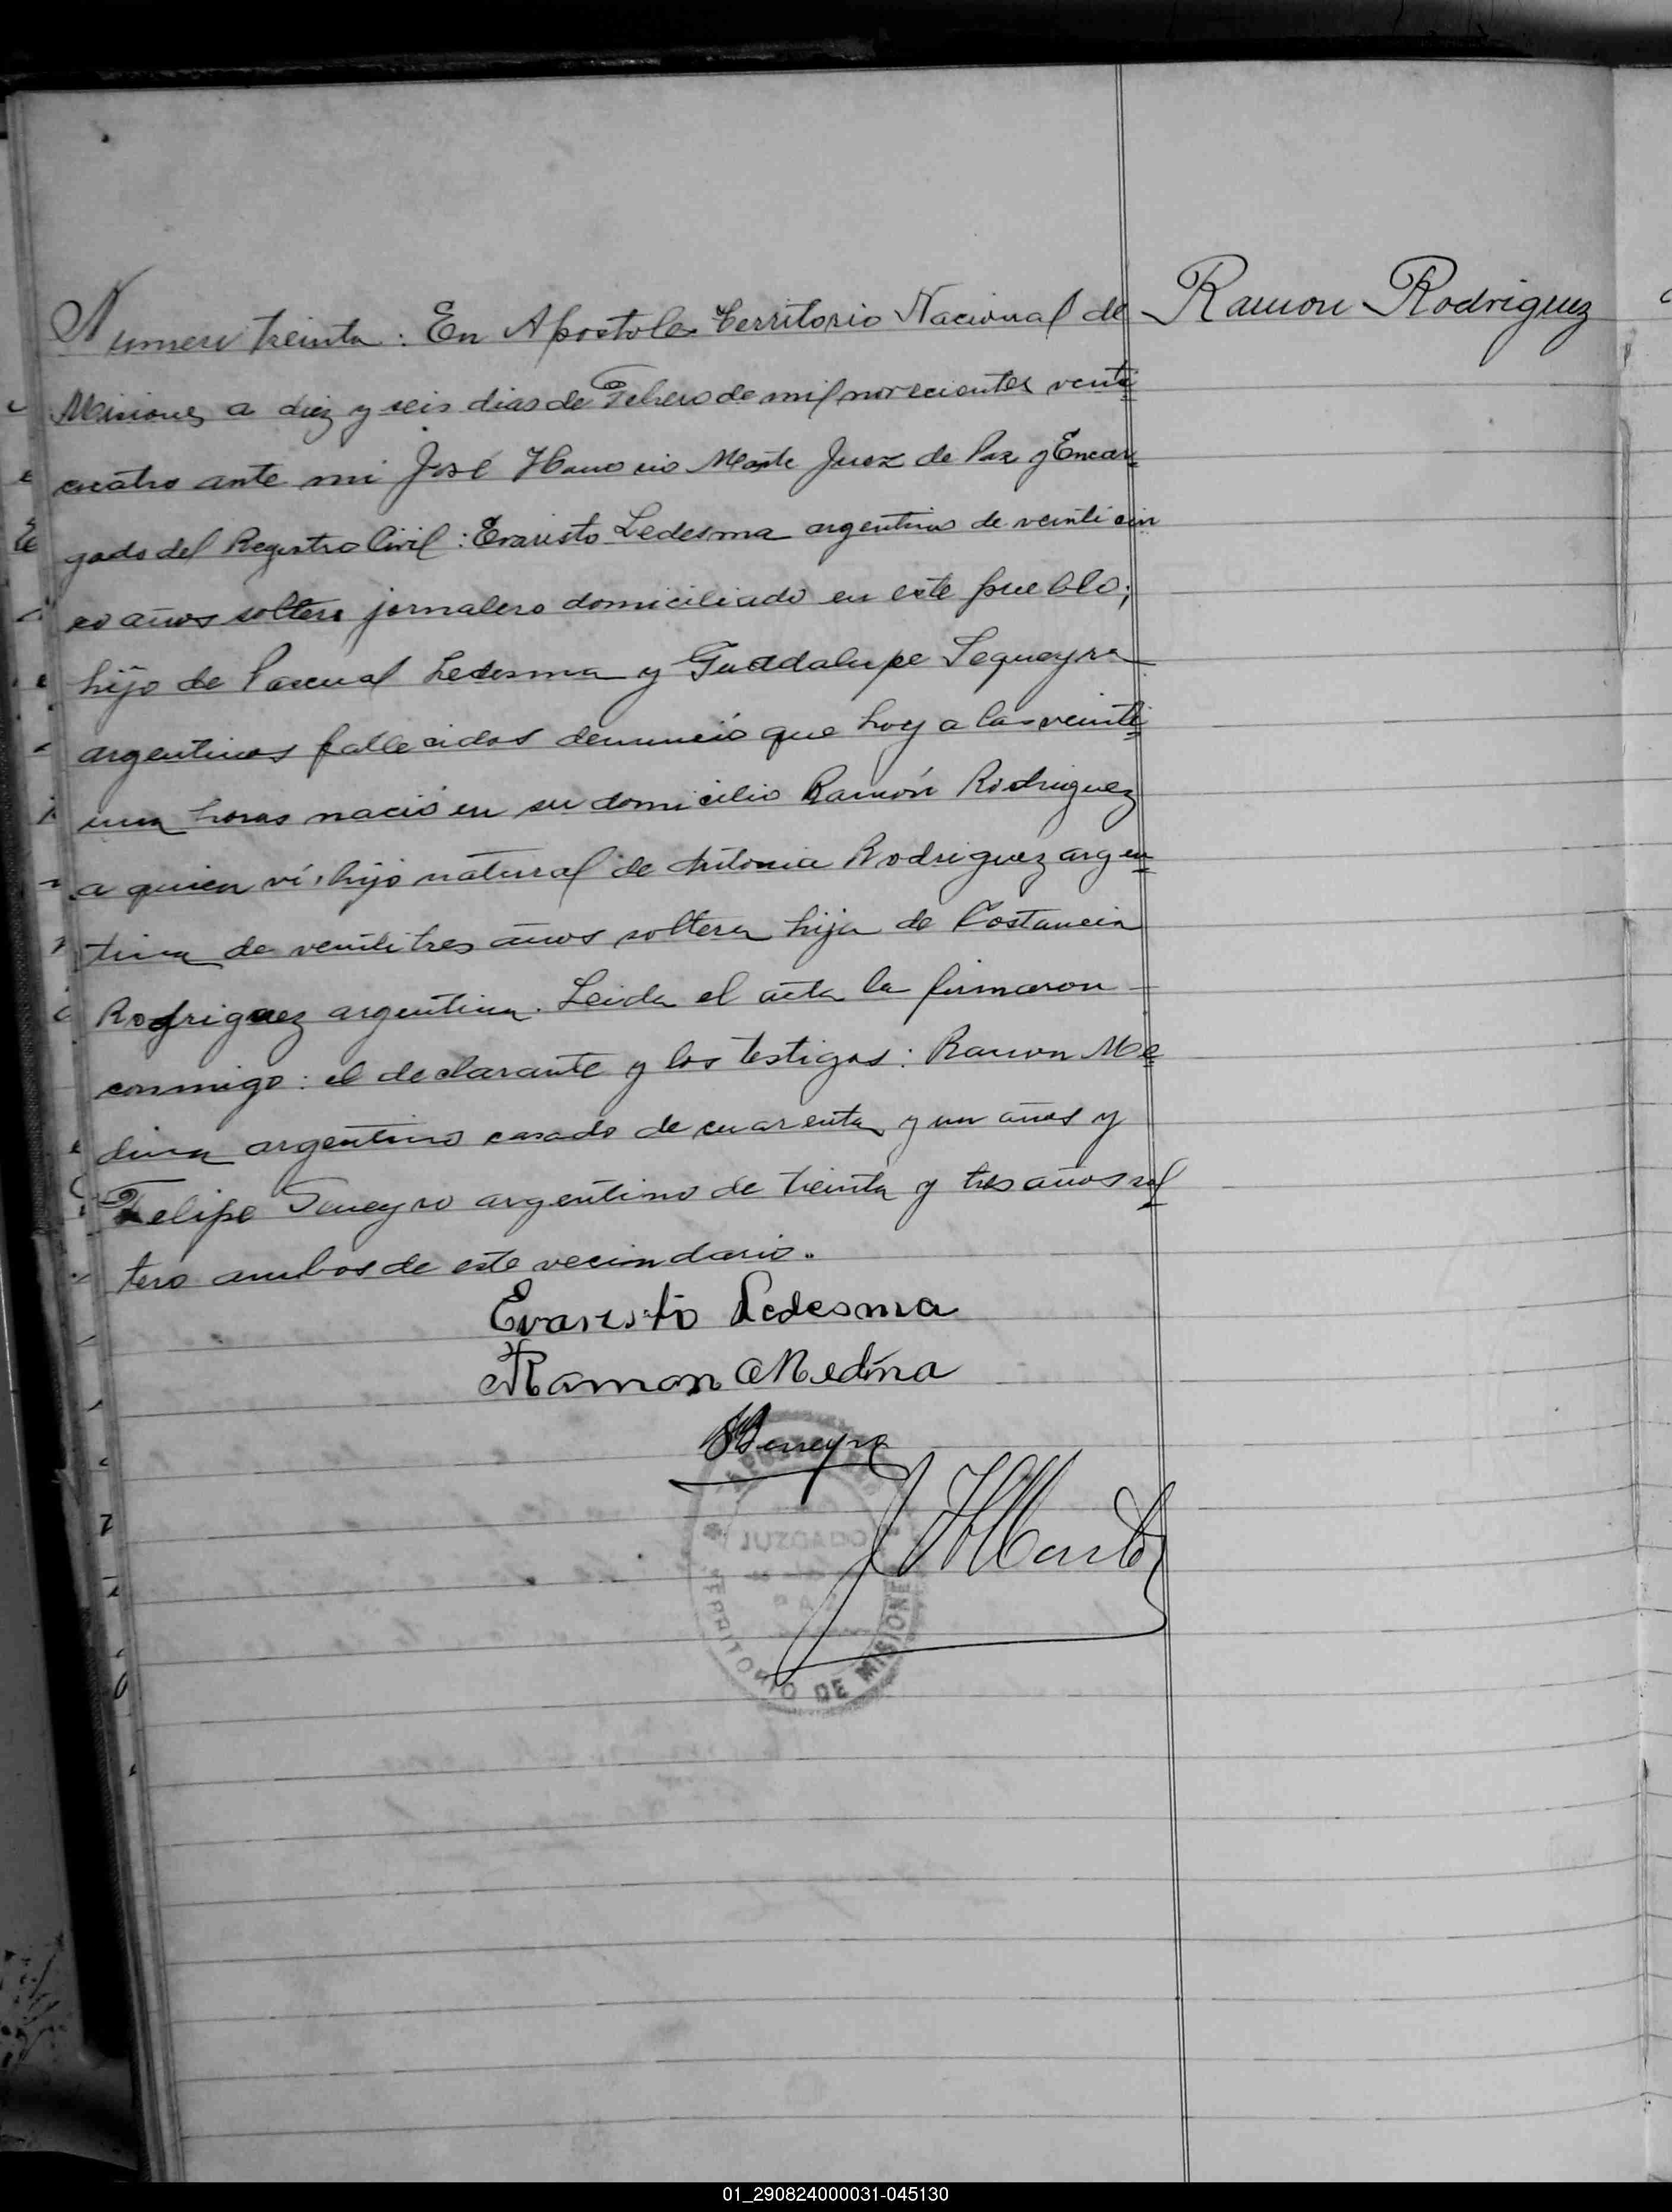 Ramon Rodriguez
Numero treinta: En Apostoles Territorio Nacional de
Misiones a diez y seis dias de Febrero de mil novecientos venti
cuatro ante mi José Juez de Paz y Encar
gado del Registro Civil: Evaristo Ledesma argentino de veinticin
co años soltero jornalero domiciliado en este pueblo;
hijo de Pascual Ledesma y Guadalupe Sequeyra
argentinos fallecidos denunció que hoy a las veinti
una horas nació en su domicilio Ramón Rodriguez
a quien ví, hijo natural de Antonia Rodriguez argen
tina de veintitres años soltera hija de Costancia
Rodriguez argentina. Leida el acta la firmaron
conmigo: el declarante y los testigos: Ramon Me
dina argentino casado de cuarenta y un años y
Felipe argentino de treinta y tres años sol
tero ambos de este vecindario.
Evaristo Ledesma
Ramon Medina
JUZGADO
DE
PAZ
TERRITORIO DE MISIONES
01_290824000031-045130